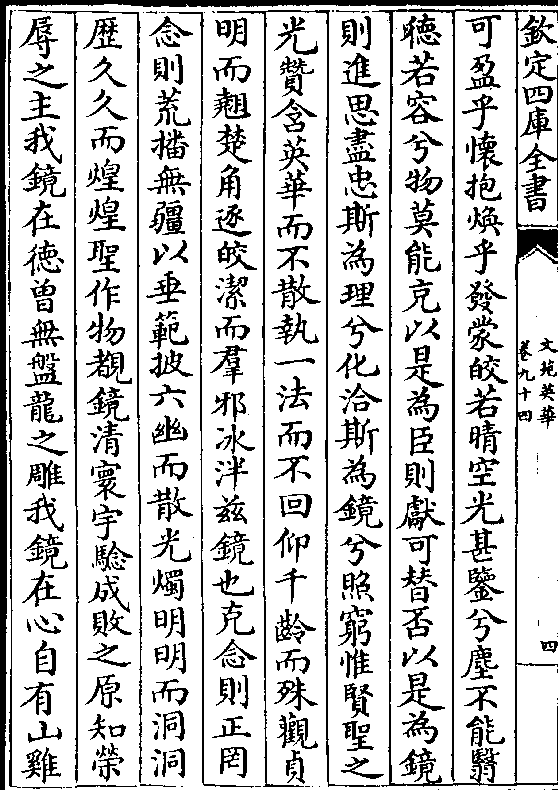 欽定四庫全書
文苑英華
卷九十四
四
可盈乎懷抱煥乎發蒙皎若晴空光甚鑒兮塵不能翳
聴若容兮物莫能克以是為臣則獻可替否以是為鏡
則進思盡忠斯為理兮化洽斯為鏡兮照窮惟賢聖之
光贊含英華而不散執一法而不回仰千齡而殊觀貞
明而翹楚角逐皎潔而羣邪冰泮兹鏡也克念則正罔
念則荒播無疆以垂範披六幽而散光燭明明而洞洞
歴久久而煌煌聖作物覩鏡清寰宇驗成敗之原知榮
辱之主我鏡在徳曽無盤龍之雕我鏡在心自有山雞